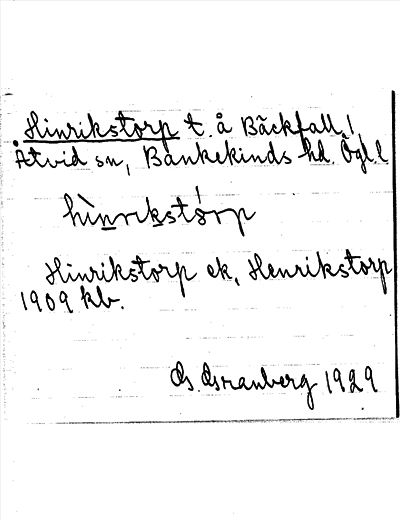 Hinrikstorp t. å Bäckfall,
Åtvid sn, Bankekinds hd. Ögl. l
hìnrikstórp
Hinrikstorp ek, Henrikstorp
1909 kb.
G. Granberg 1929